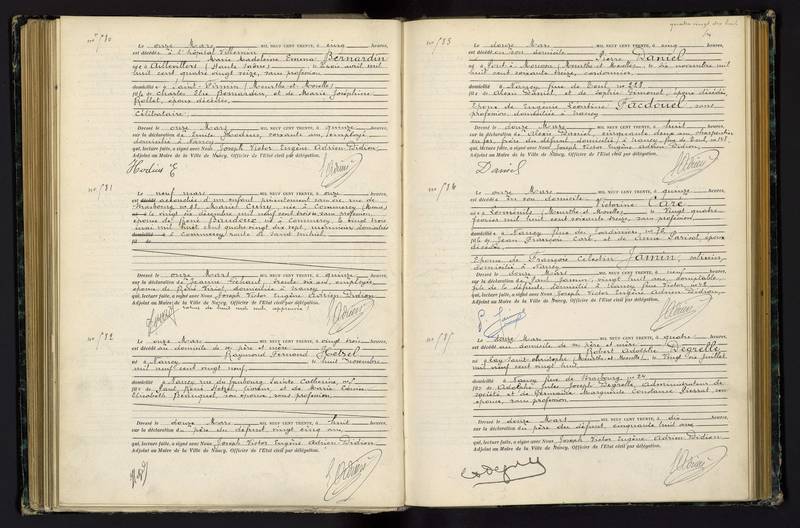 n° 580
Le onze Mars MIL NEUF CENT TRENTE, à cinq heures,
est décédée à l'hôpital Villemin
Marie Madeleine Emma Bernardin
née à Aillevillers (Haute Saône) le trois avril mil
huit cent quatre vingt seize, sans profession
domiciliée à Saint Firmin (Meurthe et Moselle)
fille de Charles Elie Bernardin, et de Marie Joséphine
Rollet, époux décédés
Célibataire
Dressé le onze Mars MIL NEUF CENT TRENTE, à quinze heures,
sur la déclaration de Emile Hodius, soixante ans, employé
domicilié à Nancy
qui, lecture faite, a signé avec Nous Joseph Victor Eugène Adrien Didion
Adjoint au Maire de la Ville de Nancy, Officier de l'Etat civil par délégation.
Hodius E
n° 581
Le neuf mars MIL NEUF CENT TRENTE, à onze heures,
est accouchée d'un enfant présentement sans vie, rue de
Strasbourg Mariel Cuny, née à Commercy (Meuse)
le vingt six décembre mil neuf cent trois, sans profession
épouse de René né à Commercy le vingt trois
mai mil huit cent quatre vingt dix sept, domiciliés
à Commercy route de Saint Mihiel
Dressé le onze Mars MIL NEUF CENT TRENTE, à quinze heures,
sur la déclaration de Jeanne trente six ans, employée,
épouse de à Nancy
qui, lecture faite, a signé avec Nous Joseph Victor Eugène Adrien Didion
Adjoint au Maire de la Ville de Nancy, Officier de l'Etat civil par délégation.
n° 582
Le onze Mars MIL NEUF CENT TRENTE, à vingt trois heures,
est décédé au domicile de ses père et mère
Raymond Fernand Hetzel
né à Nancy le huit Novembre
mil neuf cent vingt neuf
domicilié à Nancy rue du faubourg Sainte Catherine, n°
fils de Paul René Hetzel, et de Marie Louise
Elisabeth son épouse, sans profession
Dressé le douze Mars MIL NEUF CENT TRENTE, à huit heures,
sur la déclaration du père du défunt vingt cinq ans
qui, lecture faite, a signé avec Nous Joseph Victor Eugène Adrien Didion
Adjoint au Maire de la Ville de Nancy, Officier de l'Etat civil par délégation.
quatre vingt dix huit
n° 583
Le douze Mars MIL NEUF CENT TRENTE, à cinq heures,
est décédé en son domicile Pierre Daniel
né à Pont à Mousson (Meurthe et Moselle) le dix novembre mil
huit cent soixante treize, cordonnier
domicilié à Nancy rue de Toul n° 228
fils de Alexis Daniel et de Sophie époux décédés
Epoux de Eugénie Léontine Facdouel sans
profession, domiciliée à Nancy
Dressé le douze Mars MIL NEUF CENT TRENTE, à huit heures,
sur la déclaration de Alexis Daniel, cinquante deux ans charpentier
en fer, frère du défunt domicilié à Nancy rue de Toul n°
qui, lecture faite, a signé avec Nous Joseph Victor Eugène Adrien Didion
Adjoint au Maire de la Ville de Nancy, Officier de l'Etat civil par délégation.
Daniel
n° 584
Le onze Mars MIL NEUF CENT TRENTE, à quinze heures,
est décédée en son domicile
Victorine Caré
née à (Meurthe et Moselle) le vingt quatre
février mil huit cent soixante treize, sans profession
domiciliée à Nancy rue des Jardiniers, n° 70
fille de Jean François Caré, et de Anne Parisot, époux
décédés
Epouse de François Célestin Jamin,
domicilié à Nancy
Dressé le douze Mars MIL NEUF CENT TRENTE, à neuf heures,
sur la déclaration de Paul Jamin, vingt huit ans, comptable
fils de la défunte domicilié à Nancy rue Victor n°
qui, lecture faite, a signé avec Nous Joseph Victor Eugène Adrien Didion
Adjoint au Maire de la Ville de Nancy, Officier de l'Etat civil par délégation.
P. Jamin
n° 585
Le douze Mars MIL NEUF CENT TRENTE, à quatre heures,
est décédé au domicile de ses père et mère
Robert Adolphe Degrelle
né à Lay Saint Christophe (Meurthe et Moselle) le vingt six juillet
mil neuf cent vingt huit
domicilié à Nancy rue de Strasbourg n° 24
fils de Adolphe Jules Joseph Degrelle, Administrateur de
société et de Germaine Marguerite Constance Pierrat son
épouse, sans profession
Dressé le douze Mars MIL NEUF CENT TRENTE, à dix heures,
sur la déclaration du père du défunt, cinquante huit ans
qui, lecture faite, a signé avec Nous Joseph Victor Eugène Adrien Didion
Adjoint au Maire de la Ville de Nancy, Officier de l'Etat civil par délégation.